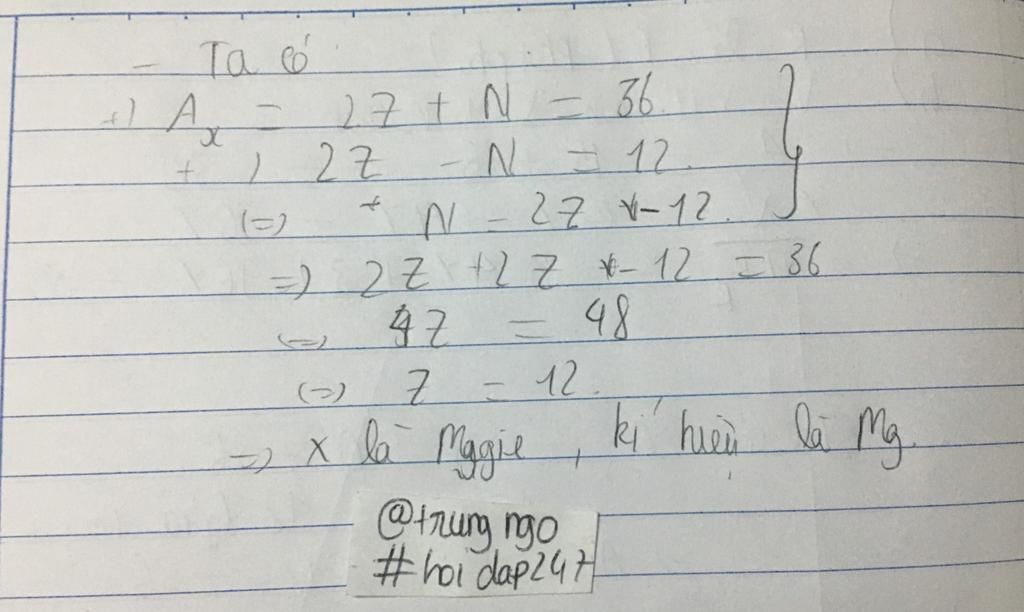 - Ta có
+) Aₓ = 2Z + N = 36.
+) 2Z - N = 12.
(=) + N = 2Z - 12.
=) 2Z + 2Z - 12 = 36
(=) 4Z = 48
(=) Z = 12.
=) X là Mggie, kí hiệu là Mg.
@trung ngo
#hoi dap247